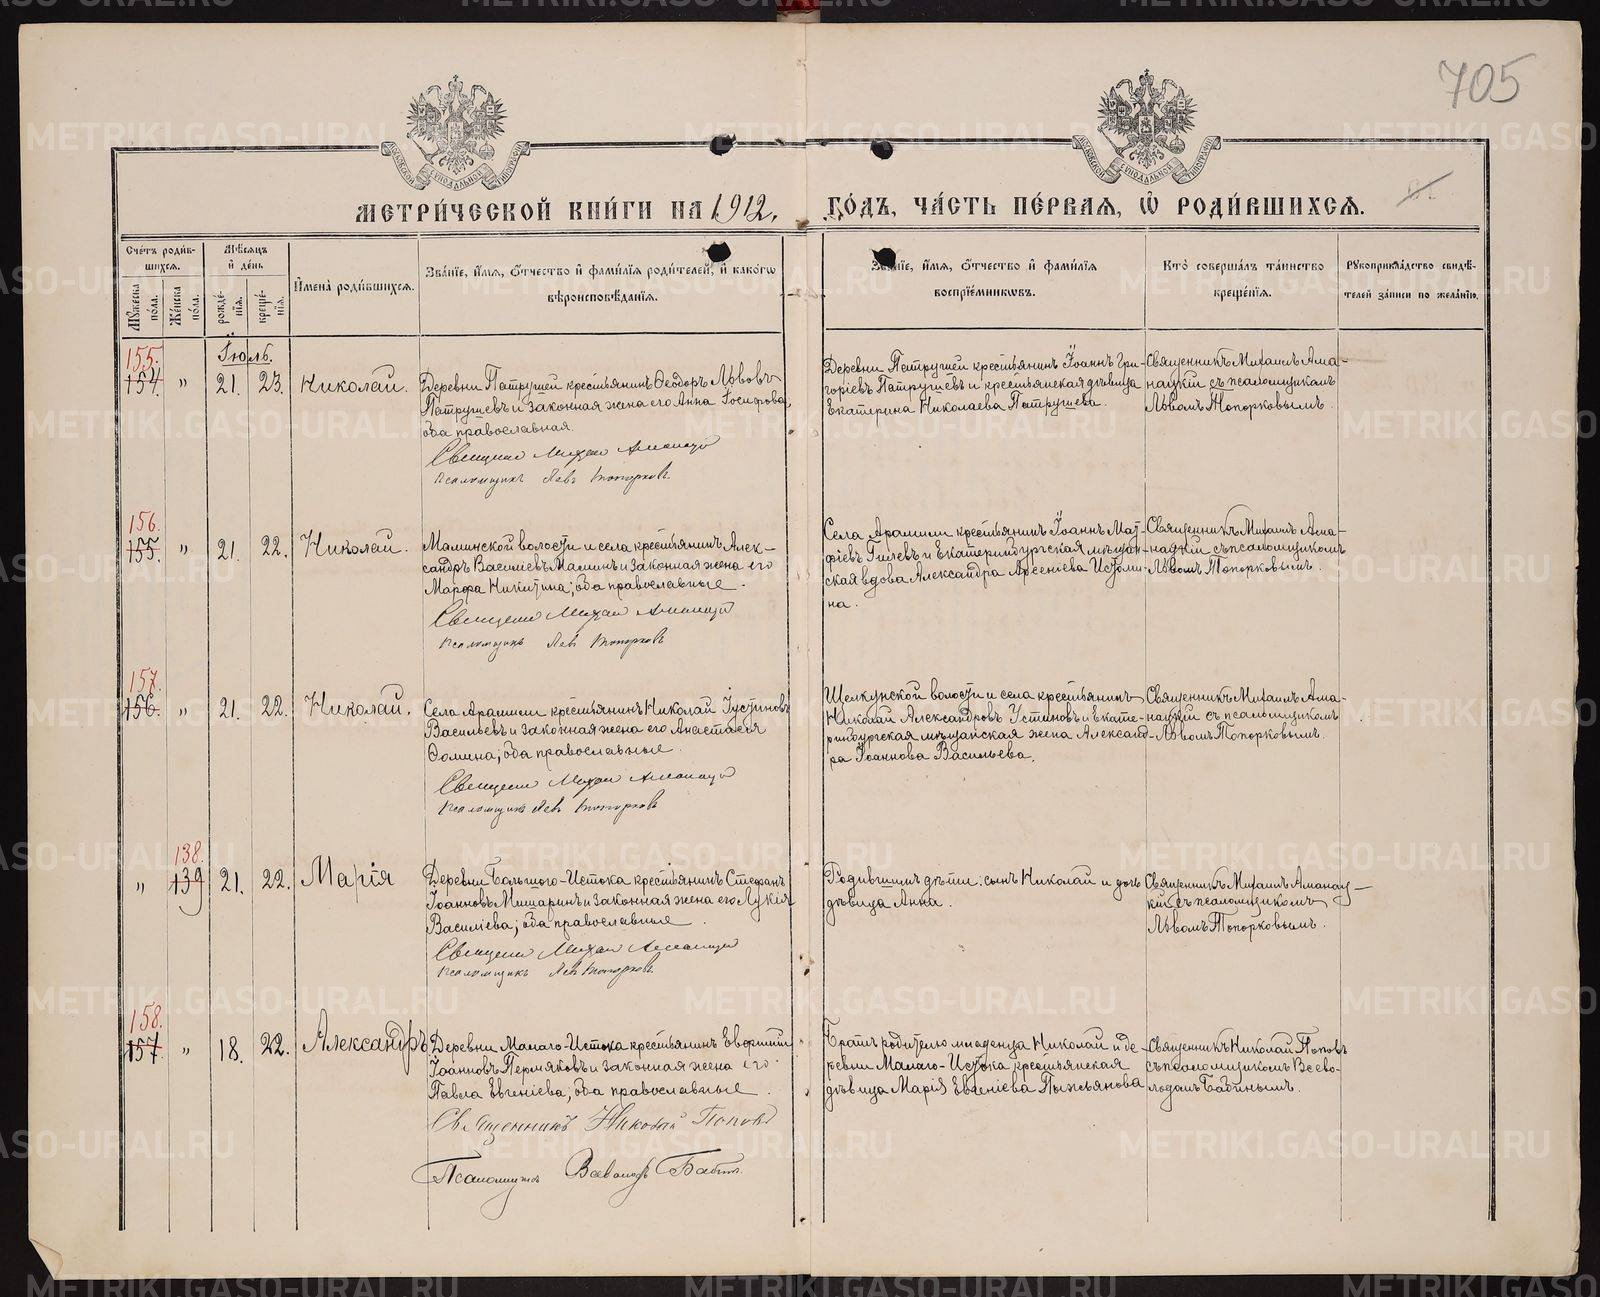 705
МЕТРИ́ЧЕСКОЙ КНИ́ГИ НА 1912. ГО́ДЪ, ЧА́СТЬ ПЕ́РВАѦ, Ѡ҆ РОДИ́ВШИХСѦ.
Сче́тъ роди́в-
шихсѧ.
Мꙋ́жеска по́ла.
Же́нска по́ла.
Мѣ́сѧцъ
и҆ де́нь
рожде́-
нїѧ.
креще́-
нїѧ.
И҆мена̀ роди́вшихсѧ.
Зва́нїе, и҆́мѧ, ѻ҆́тчество и҆ фами́лїѧ роди́телей, и҆ како́гѡ
вѣроисповѣ́данїѧ.
Зва́нїе, и҆́мѧ, ѻ҆́тчество и҆ фами́лїѧ
воспрїе́мникѡвъ.
Кто̀ соверша́лъ та́инство
креще́нїѧ.
Рꙋкоприкла́дство свидѣ́-
телей за́писи по жела́нїю.
Іюль.
155.
154. " 21. 23. Николай.
Деревни Патрушей крестьянинъ Ѳеодоръ Львовъ
Патрушевъ и законная жена его Анна Іосифова,
оба православная.
Священникъ Михаил Аманацкій
Псаломщикъ Левъ Топорковъ.
Деревни Патрушей крестьянинъ Іоаннъ Гри-
горіевъ Патрушевъ и крестьянская дѣвица
Екатерина Николаева Патрушева.
Священникъ Михаилъ Ама-
нацкій съ псаломщикомъ
Львомъ Топорковымъ.
156.
155. " 21. 22. Николай.
Маминской волости и села крестьянинъ Алек-
сандръ Василіевъ Маминъ и законная жена его
Марфа Никитина; оба православные.
Священникъ Михаил Аманацкій
Псаломщикъ Левъ Топорковъ
Села Арамили крестьянинъ Іоаннъ Мат-
фіевъ Гилевъ и Екатеринбургская мѣщан-
ская вдова Александра Арсеніева Истоми-
на.
Священникъ Михаилъ Ама-
нацкій съ псаломщикомъ
Львомъ Топорковымъ.
157.
156. " 21. 22. Николай.
Села Арамили крестьянинъ Николай Іустиновъ
Васильевъ и законная жена его Анастасія
Ѳомина; оба православные.
Священникъ Михаил Аманацкій
Псаломщикъ Левъ Топорковъ
Щелкунской волости и села крестьянинъ
Николай Александровъ Устиновъ и Екате-
ринбургская мѣщанская жена Александ-
ра Іоаннова Васильева.
Священникъ Михаилъ Ама-
нацкій съ псаломщикомъ
Львомъ Топорковымъ.
138.
" 139 21. 22. Марія
Деревни Большого-Истока крестьянинъ Стефанъ
Іоанновъ Мишаринъ и законная жена его Лукія
Василіева; оба православные.
Священникъ Михаил Аманацкій
Псаломщикъ Левъ Топорковъ.
Родившимъ дѣти: сынъ Николай и дочь
дѣвица Анна.
Священникъ Михаилъ Аманац-
кій съ псаломщикомъ
Львомъ Топорковымъ.
158.
157. " 18. 22. Александръ
Деревни Малаго-Истока крестьянинъ Евфимій
Іоанновъ Пермяковъ и законная жена его
Павла Евгеніева; оба православные.
Священникъ Николай Поповъ
Псаломщикъ Всеволодъ Бабинъ.
Братъ родителю младенца Николай и де-
ревни Малаго-Истока крестьянская
дѣвица Марія Евгеніева Пыжьянова
Священникъ Николай Поповъ
съ псаломщикомъ Всево-
лодомъ Бабинымъ.
METRIKI.GASO-URAL.RU